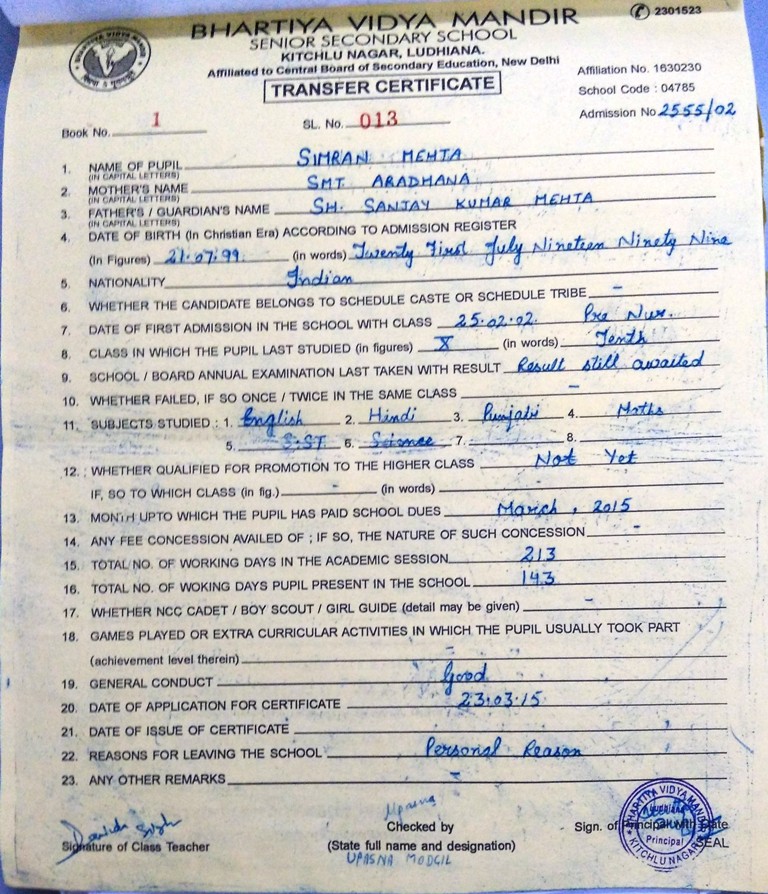 BHARTIYA VIDYA MANDIR
SENIOR SECONDARY SCHOOL
KITCHLU NAGAR, LUDHIANA.
Affiliated to Central Board of Secondary Education, New Delhi
TRANSFER CERTIFICATE
✆ 2301523
Affiliation No. 1630230
School Code : 04785
Admission No 2555/02
Book No. 1 SL. No. 013
1. NAME OF PUPIL SIMRAN MEHTA
(IN CAPITAL LETTERS)
2. MOTHER'S NAME SMT ARADHANA
(IN CAPITAL LETTERS)
3. FATHER'S / GUARDIAN'S NAME SH. SANJAY KUMAR MEHTA
(IN CAPITAL LETTERS)
4. DATE OF BIRTH (In Christian Era) ACCORDING TO ADMISSION REGISTER
(In Figures) 21.07.99. (in words) Twenty First July Nineteen Ninety Nine
5. NATIONALITY Indian
6. WHETHER THE CANDIDATE BELONGS TO SCHEDULE CASTE OR SCHEDULE TRIBE –
7. DATE OF FIRST ADMISSION IN THE SCHOOL WITH CLASS 25.02.02. Pre Nur.
8. CLASS IN WHICH THE PUPIL LAST STUDIED (in figures) X (in words) Tenth
9. SCHOOL / BOARD ANNUAL EXAMINATION LAST TAKEN WITH RESULT Result still awaited
10. WHETHER FAILED, IF SO ONCE / TWICE IN THE SAME CLASS –
11. SUBJECTS STUDIED : 1. English 2. Hindi 3. Punjabi 4. Maths
5. S.ST 6. Science 7. 8.
12. WHETHER QUALIFIED FOR PROMOTION TO THE HIGHER CLASS Not Yet
IF, SO TO WHICH CLASS (in fig.) – (in words) –
13. MONTH UPTO WHICH THE PUPIL HAS PAID SCHOOL DUES March, 2015
14. ANY FEE CONCESSION AVAILED OF ; IF SO, THE NATURE OF SUCH CONCESSION –
15. TOTAL NO. OF WORKING DAYS IN THE ACADEMIC SESSION 213
16. TOTAL NO. OF WOKING DAYS PUPIL PRESENT IN THE SCHOOL 143
17. WHETHER NCC CADET / BOY SCOUT / GIRL GUIDE (detail may be given) –
18. GAMES PLAYED OR EXTRA CURRICULAR ACTIVITIES IN WHICH THE PUPIL USUALLY TOOK PART
(achievement level therein) –
19. GENERAL CONDUCT Good
20. DATE OF APPLICATION FOR CERTIFICATE 23.03.15
21. DATE OF ISSUE OF CERTIFICATE
22. REASONS FOR LEAVING THE SCHOOL Personal Reason
23. ANY OTHER REMARKS –
Signature of Class Teacher
Upasna
Checked by
(State full name and designation)
UPASNA MODGIL
Sign. of Principal with Date
SEAL
BHARTIYA VIDYA MANDIR
Ludhiana
Principal
KITCHLU NAGAR